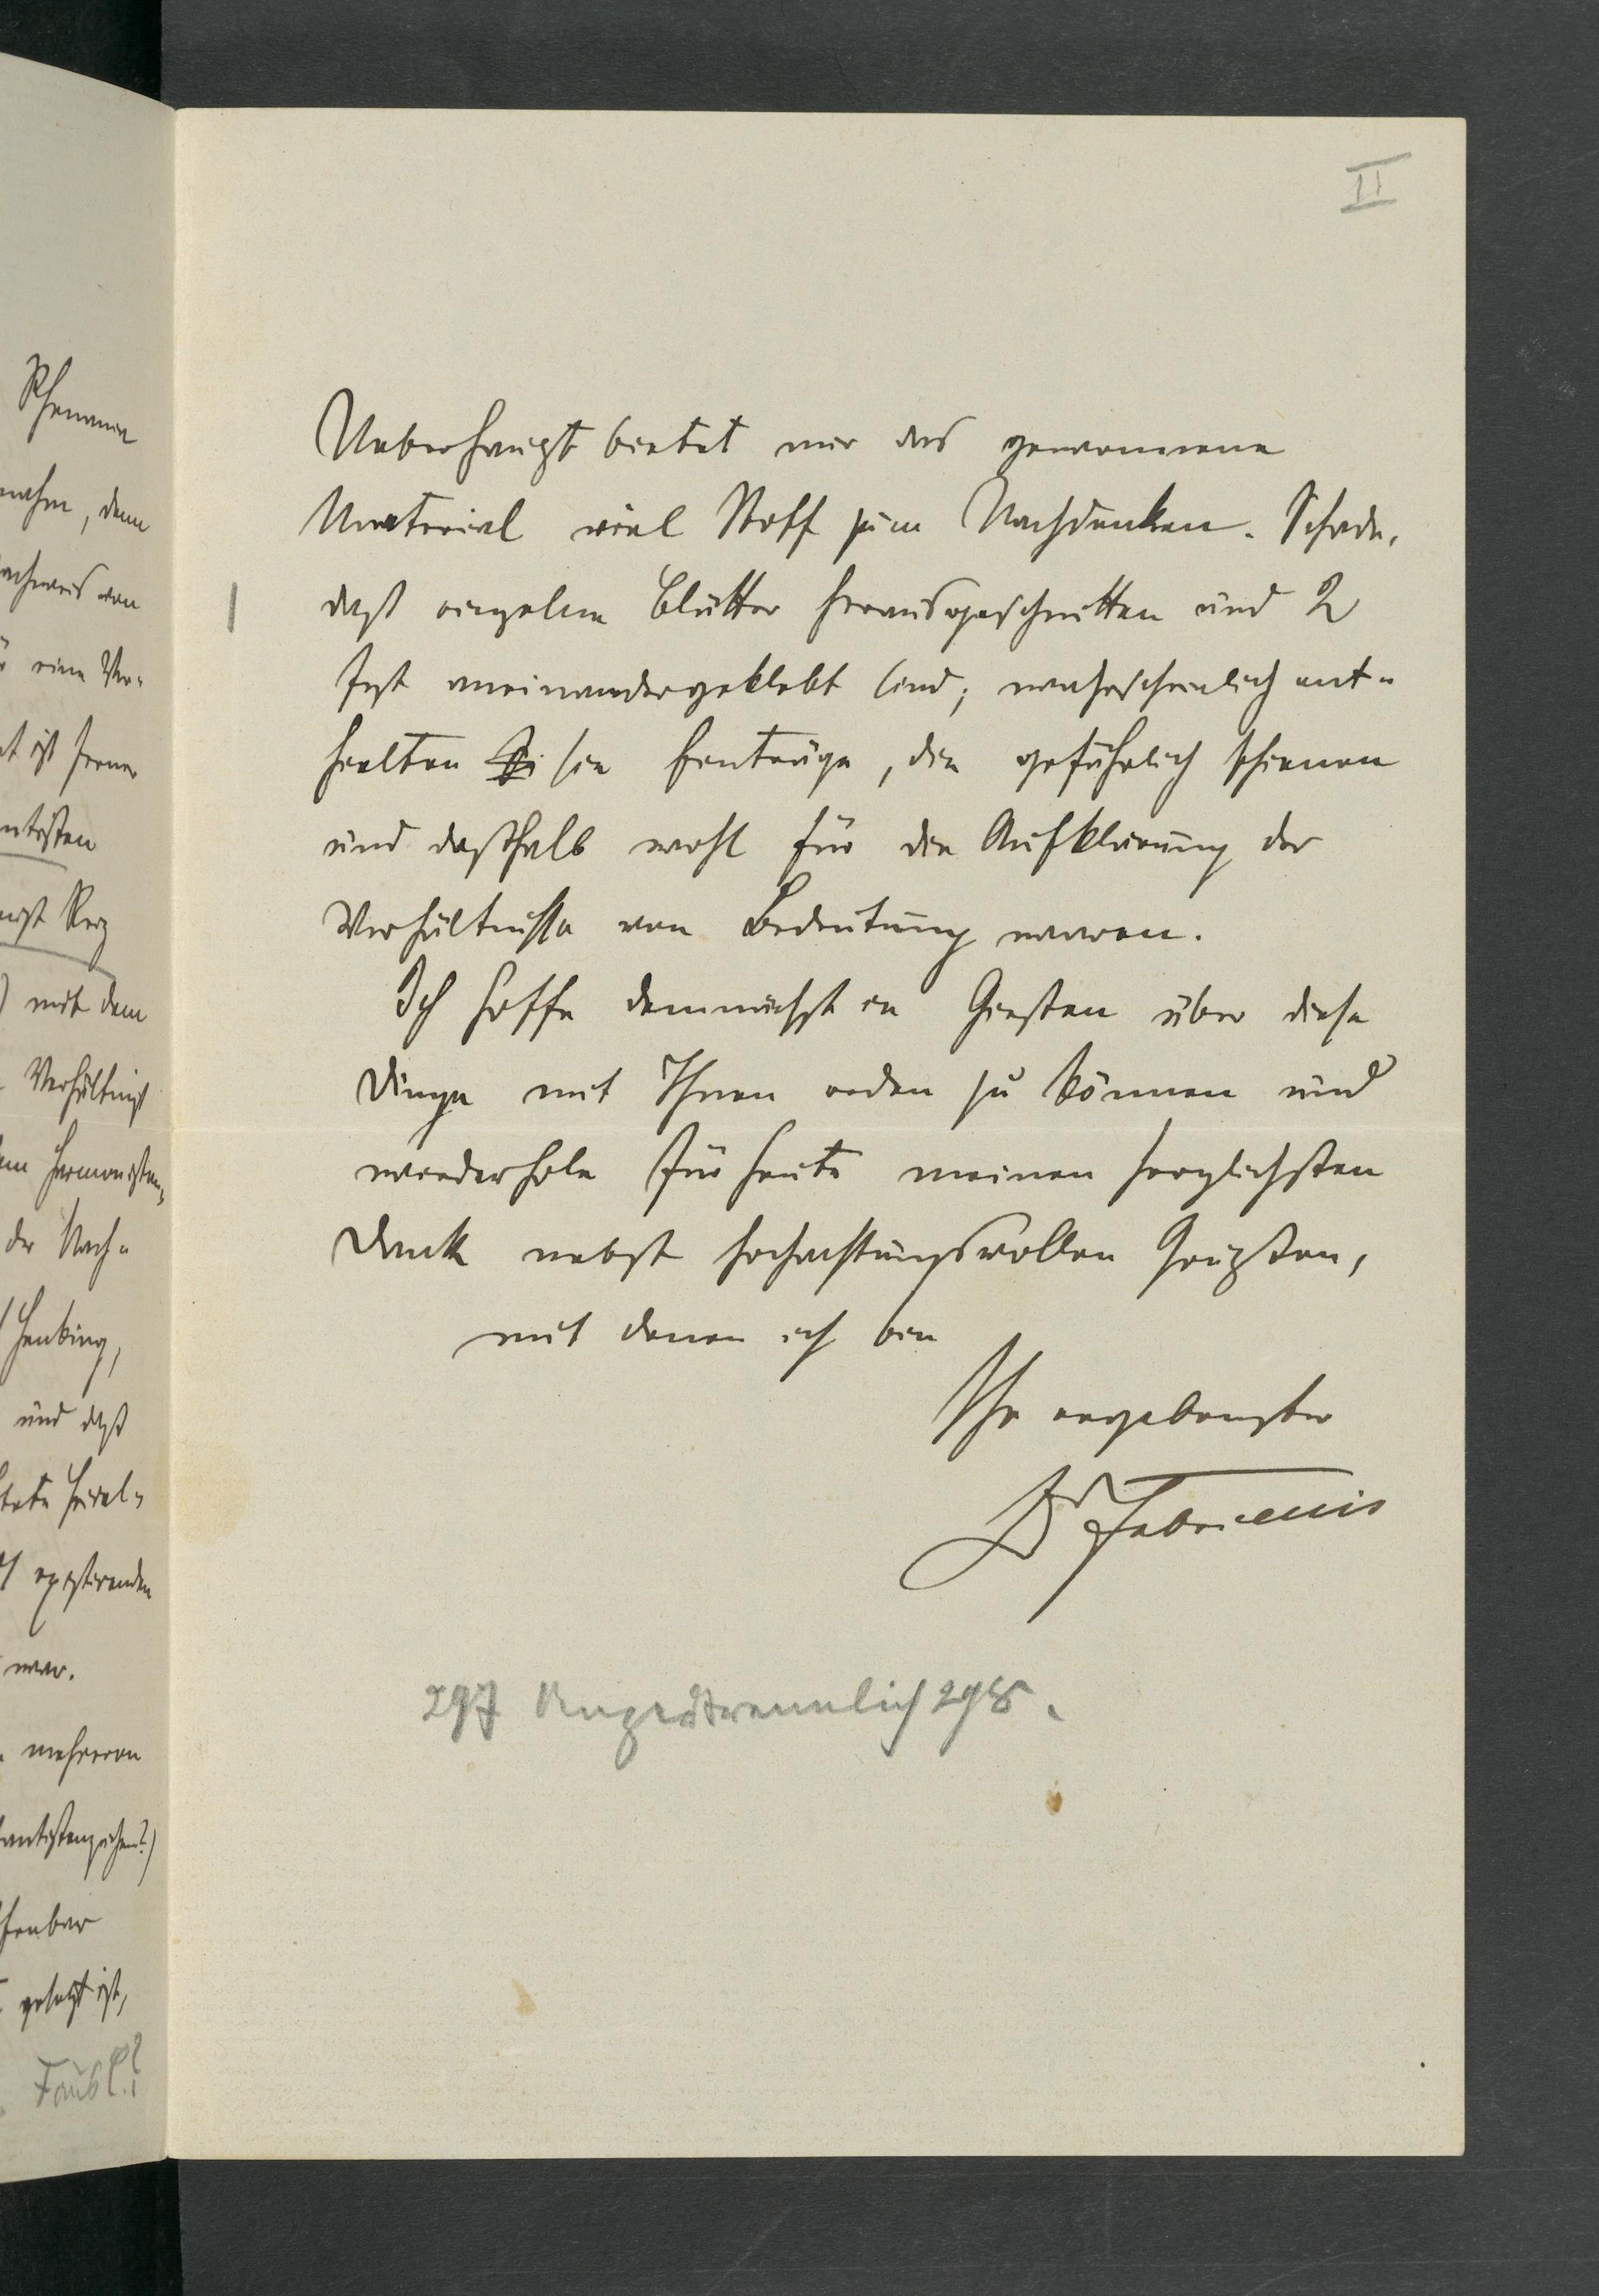 II
Ueberhaupt bietet mir das gewonnene
Material viel Stoff zum Nachdenken. Schade,
daß einzelne Blätter herausgeschnitten und 2
fest aneinandergeklebt sind; wahrscheinlich ent-
hielten sie Einträge, die gefährlich schienen
und deßhalb wohl für die Aufklärung der
Verhältnisse von Bedeutung waren.
Ich hoffe demnächst in Giessen über diese
Dinge mit Ihnen reden zu können und
wiederhole für heute meinen herzlichsten
Dank nebst hochachtungsvollen Grüßen,
mit denen ich bin
Ihr ergebenster
Dr Fabricius
297 298.
nahm, denn
eine Ver-
ist ferner
mit dem
Verhältniß
der Nach-
und daß
war.
mehreren
gesetzt ist,